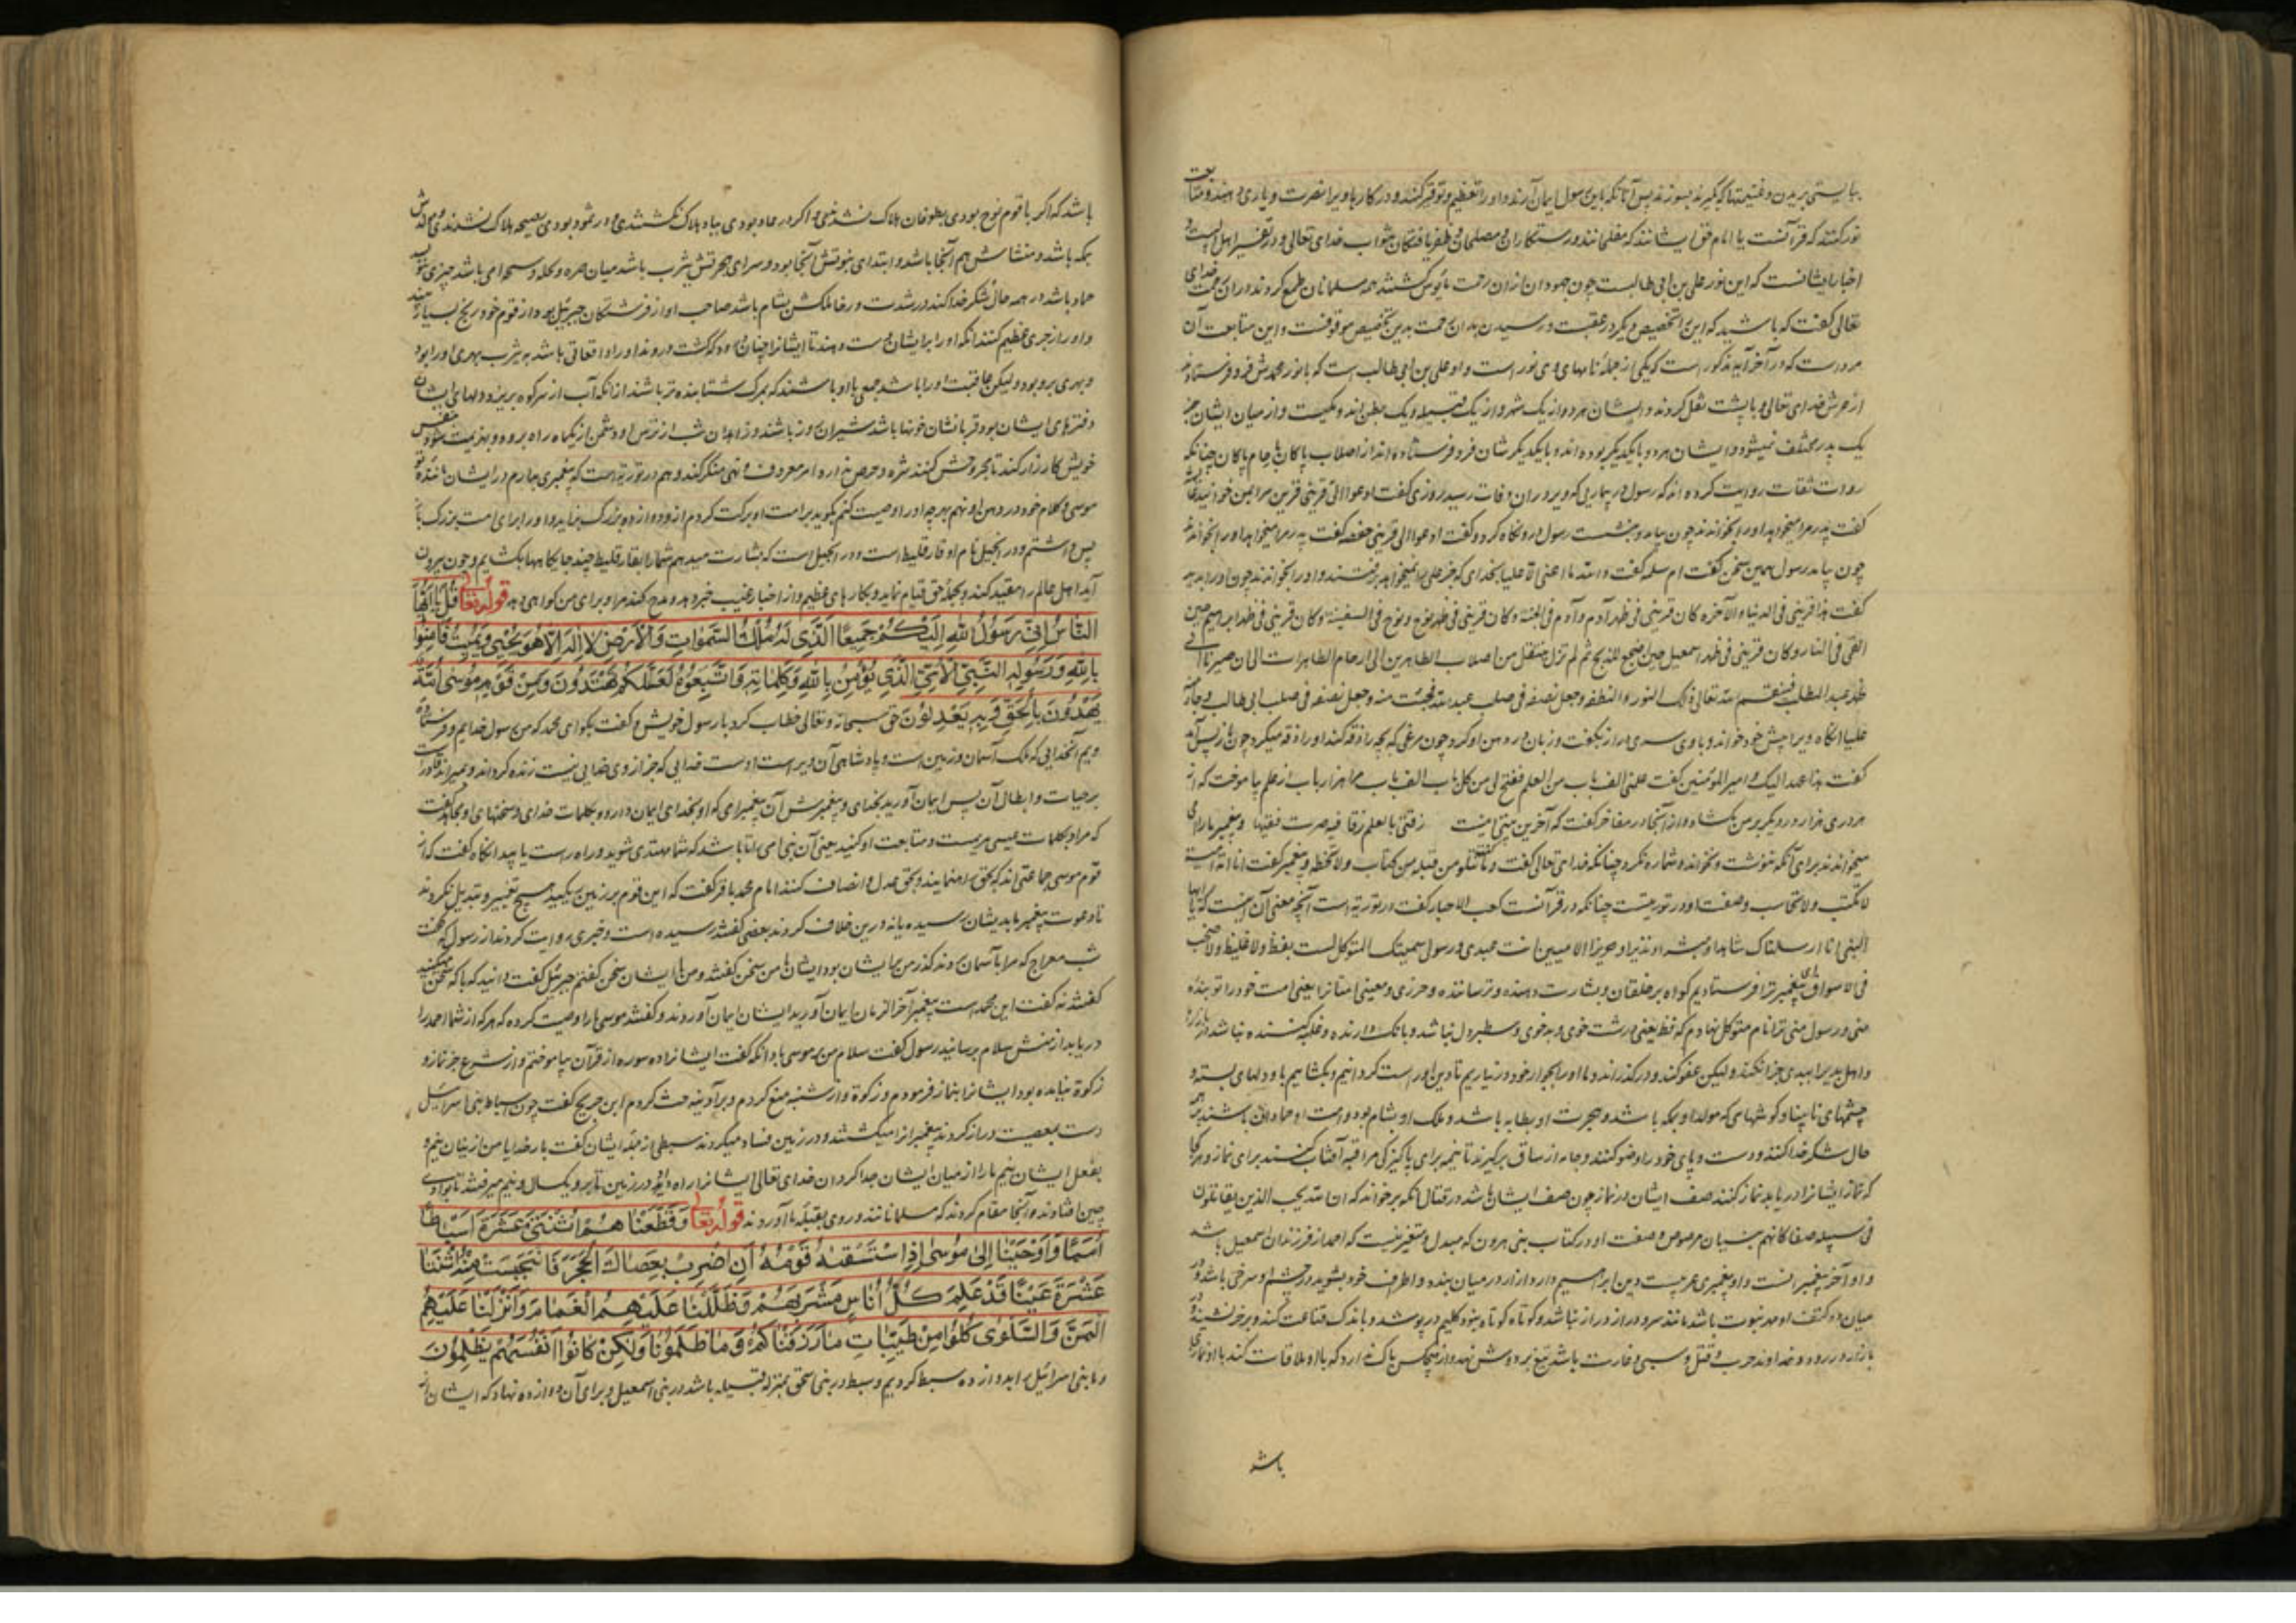 ببایستی بریدن و غنیمتها که گیرند بسوزند پس آنانکه باین رسول ایمان آرند و او را تعظیم و توقیر کنند و در کارها ویرا نصرت و یاری دهند و متابعت
نور کنند که قرآنست یا امام حق ایشانند که مفلحانند و رستکاران و مصلحان و ظفر یافتکان بثواب خدای تعالی و در تفسیر اهل البیت و
اخبار ایشانست که این نور علی بن ابی طالبست چون جهودان ازان رحمت مأیوس کشتند همه مسلمانان طمع کردند دران رحمت خدای
تعالی کفت که باشید که این را تخصیصی دیکر در عقبست و رسیدن بدان رحمت بدین تخصیص موقوفست و این متابعت آن
مردست که در آخر آیه مذکور است که یکی از جمله نامهای وی نور است و او علی بن ابی طالب است که با نور محمدش فرو فرستادند
از عرش خدای تعالی و با پشت نقل کردند و ایشان هر دو از یک شهر و از یک قبیله و یک بطن اند و از میان ایشان جز
یک پدر مختلف نمیشود و ایشان هر دو با یکدیکر بوده اند و با یکدیکر شان فرو فرستاده اند از اصلاب پاکان بارحام پاکان چنانکه
روات ثقات روایت کرده اند که رسول در بیماریی که ویرا دران وفات رسید روزی کفت ادعوا الی قرینی قرین مرا بمن خوانید عایشه
کفت پدر مرا میخواهد او را بخواندند چون بیامد و بنشست رسول درو نکاه کرد و کفت ادعوا الی قرینی حفصه کفت پدر مرا میخواهد او را بخواندند
چون بیامد رسول همین سخن کفت ام سلمه کفت والله ما اعنی الا علیا بخدای که جز علی را نمیخواهد بفرستند و او را بخواندند چون او را بدید
کفت هذا قرینی فی الدنیا والآخرة کان قرینی فی ظهر آدم و آدم فی الجنة و کان قرینی فی ظهر نوح و نوح فی السفینة و کان قرینی فی ظهر ابراهیم حین
القی فی النار و کان قرینی فی ظهر اسمعیل حین اضجع للذبح ثم لم تزل منتقل من اصلاب الطاهرین الی ارحام الطاهرات الی ان صیرنا الی
ظهر عبد المطلب فقسم الله تعالی ذلک النور والنطفة وجعل نصفه فی صلب عبد الله فجئت منه وجعل نصفه فی صلب ابی طالب
علیا آنکاه ویرا پیش خود خواند و با وی سری دراز بکفت و زبان در دهن او کرد چون مرغی که بچه را زقه کند او را زقه میکرد چون باز پس آمد
کفت هذا عهد الیک امیر المؤمنین کفت علمنی الف باب من العلم ففتح لی من کل باب الف باب مرا هزار باب از علم بیاموخت که از
هر دری هزار در دیکر بر من بکشاد و از آنجا در مفاخر کفت که آخرین بیتی اینست زقنی بالعلم زقا فیه صرت فقیها و پیغمبر ما را امی
میخواندند برای آنکه ننوشت و نخواند و شماره نکرد چنانکه خدای تعالی کفت و ما کنت تتلو من قبله من کتاب ولا تخطه و پیغمبر کفت انا امة امیة
لا نکتب ولا نحاسب و صفت او در توریتست چنانکه در قرآنست کعب الاحبار کفت در توریة است آنچه معنی آن اینست که یا ایها
النبی انا ارسلناک شاهدا و مبشرا و نذیرا و حرزا للامیین انت عبدی و رسول سمیتک المتوکل لیست بفظ ولا غلیظ ولا صخب
فی الاسواق ای پیغمبر ترا فرستادیم کواه بر خلقان و بشارت دهنده و ترساننده و حرزی و معینی امتانرا یعنی امت خود را تو بندهٔ
منی و رسول منی ترا نام متوکل نهادم که فظ یعنی درشت خوی و بدخوی و سطبر دل نباشد و بانک دارنده و غلبه کننده نباشد در بازارها
و اهل بدیرا بدی جزا نکند ولیکن عفو کند و در کذراند و ما او را بجوار خود در نیاریم تا دین او راست کردانیم و بکشاییم باو دلهای بسته و
چشمهای نابینا و کوشهای کر مولد او بمکه باشد و هجرت او بطابه باشد و ملک او بشام بود و امت او حمادان باشند بر همه
حال شکر خدا کنند و دست و پای خود را وضو کنند و جامه از ساق برکیرند تا نیمه برای پاکیزکی مراقبه آفتاب کنند برای نماز و هرکجا
که نماز ایشانرا دریابد نماز کنند صف ایشان در نماز چون صف ایشان باشد در قتال آنکه برخواند که ان الله یحب الذین یقاتلون
فی سبیله صفا کانهم بنیان مرصوص و صفت او در کتاب بنی هرون که مبدل و متغیر نیست که احمد از فرزندان اسمعیل باشد
و او آخر پیغمبرانست و او پیغمبری عربیست و دین ابراهیم دارد ازار در میان بندد و اطراف خود بشوید در چشم او سرخی باشد و در
میان دو کتف او مهر نبوت باشد مانند سرو دراز دراز نباشد و کوتاه کوتاه نبود کلیم درپوشد و باندک قناعت کند و بر خر نشیند و در
بازار رود و خداوند حرب و قتل و سبی و غارت باشد تیغ بر دوش نهد و از هیچکس باک ندارد که با او ملاقات کند با او نمازی
باشد
باشد که اکر با قوم نوح بودی بطوفان هلاک نشدندی و اکر در عاد بودی بباد هلاک نکشتندی و در ثمود بودی بصیحه هلاک نشدندی و مولدش
بمکه باشد و منشاش هم آنجا باشد و ابتدای نبوتش آنجا بود و سرای هجرتش یثرب باشد میان حره و نخله و سبخه امی باشد چیزی ننویسد
حماد باشد در همه حال شکر خدا کند در شدت و رخا ملکش بشام باشد صاحب او از فرشتکان جبرئیل بود و از قوم خود رنج بسیار بیند
و او را زجری عظیم کنند آنکه او را بر ایشان دست دهند تا ایشانرا چنان درود که کشت دروند او را وقعاتی باشد به یثرب بهری او را بود
و بهری برو بود ولیکن عاقبت او را باشد جمعی با او باشند که بمرک شتابنده تر باشند ازانکه آب از سر کوه بریزد و دلهای ایشان
دفترهای ایشان بود قربانشان خونها باشد شیران روز باشند و زاهدان شب از ترس او دشمن از یکماهه راه برود و بهزیمت شود بنفس
خویش کارزار کند تا مجروحش کنند شره و حرص ندارد امر معروف و نهی منکر کند و هم در توریة است که پیغمبری بدارم در ایشان مانندهٔ تو
موسی و کلام خود در دهن او نهم هرچه او را وصیت کنم بکوید بر امت او برکت کردم ازو دوازده بزرک بزاید و او را برای امت بزرک باز
پس داشتم و در انجیل نام او فارقلیط است و در انجیل است که بشارت میدهم شما را بفارقلیط چند جایکاهها بکشایم و چون بیرون
آید اهل عالم را مقید کند و بجمله حق قیام نماید و بکارهای عظیم و از اخبار غیب خبر دهد و مدح کند مرا و برای من کواهی دهد قوله تعالی قُلْ یَا أَیُّهَا
النَّاسُ إِنِّی رَسُولُ اللهِ إِلَیْکُمْ جَمِیعًا الَّذِی لَهُ مُلْکُ السَّمَوَاتِ وَالْأَرْضِ لَا إِلَهَ إِلَّا هُوَ یُحْیِی وَیُمِیتُ فَآمِنُوا
بِاللهِ وَرَسُولِهِ النَّبِیِّ الْأُمِّیِّ الَّذِی یُؤْمِنُ بِاللهِ وَکَلِمَاتِهِ وَاتَّبِعُوهُ لَعَلَّکُمْ تَهْتَدُونَ وَمِنْ قَوْمِ مُوسَى أُمَّةٌ
یَهْدُونَ بِالْحَقِّ وَبِهِ یَعْدِلُونَ حق سبحانه و تعالی خطاب کرد با رسول خویش و کفت بکو ای محمد که من رسول خدایم و فرستادهٔ
ویم آنخدایی که ملک آسمان و زمین است و پادشاهی آن ویراست اوست خدایی که جز از وی خدایی نیست زنده کرداند و بمیراند قادرست
بر حیات و ابطال آن پس ایمان آورید بخدای و پیغمبرش آن پیغمبرامی که او بخدای ایمان دارد و بکلمات خدای و سخنهای او مجاهد کفت
که مراد بکلمات عیسی مریمست و متابعت او کنید یعنی آن نبی امی را تا باشد که شما مهتدی شوید و راه راست یابید آنکاه کفت که از
قوم موسی جماعتی اند که بحق راه نمایند و بحق عدل و انصاف کنند امام محمد باقر کفت که این قوم بر زمین یکیند هیچ تغییر و تبدیل نکردند
تا دعوت پیغمبر ما بدیشان رسیده یا نه درین خلاف کردند بعضی کفتند رسیده است و خبری روایت کردند از رسول که کفت
شب معراج که مرا بآسمان بردند کذر من بر ایشان بود ایشان با من سخن کفتند و من با ایشان سخن کفتم جبرئیل کفت دانید که با که سخن میکنید
کفتند نه کفت این محمد است پیغمبر آخر الزمان ایمان آورید ایشان ایمان آوردند و کفتند موسی ما را وصیت کرده که هرکه از شما احمد را
دریابد از منش سلام برسانید رسول کفت سلام من بر موسی باد آنکه کفت ایشانرا ده سوره از قرآن بیاموختم و از شرع جز نماز و
زکوة نیامده بود ایشانرا بنماز فرمودم و زکوة و از شنبه منع کردم و بر آدینه حث کردم ابن جریج کفت چون اسباط بنی اسرائیل
دست بمعصیت دراز کردند پیغمبرانرا میکشتند و در زمین فساد میکردند سبطی از جمله ایشان کفت بار خدایا من از اینان نیم و
بفعل ایشان نیم ما را از میان ایشان جدا کردان خدای تعالی ایشانرا راه داد در زمین تا برو یکسال و نیم میرفتند تا بوادی
چین افتادند و آنجا مقام کردند که مسلمانانند و روی بقبله ما آوردند قوله تعالی وَقَطَّعْنَاهُمُ اثْنَتَیْ عَشْرَةَ أَسْبَاطًا
أُمَمًا وَأَوْحَیْنَا إِلَى مُوسَى إِذِ اسْتَسْقَاهُ قَوْمُهُ أَنِ اضْرِبْ بِعَصَاکَ الْحَجَرَ فَانْبَجَسَتْ مِنْهُ اثْنَتَا
عَشْرَةَ عَیْنًا قَدْ عَلِمَ کُلُّ أُنَاسٍ مَشْرَبَهُمْ وَظَلَّلْنَا عَلَیْهِمُ الْغَمَامَ وَأَنْزَلْنَا عَلَیْهِمُ
الْمَنَّ وَالسَّلْوَى کُلُوا مِنْ طَیِّبَاتِ مَا رَزَقْنَاکُمْ وَمَا ظَلَمُونَا وَلَکِنْ کَانُوا أَنْفُسَهُمْ یَظْلِمُونَ
و ما بنی اسرائیل را بدوازده سبط کردیم و سبط در بنی اسحق بمنزله قبیله باشد در بنی اسمعیل و برای آن دوازده نهاد که ایشان از